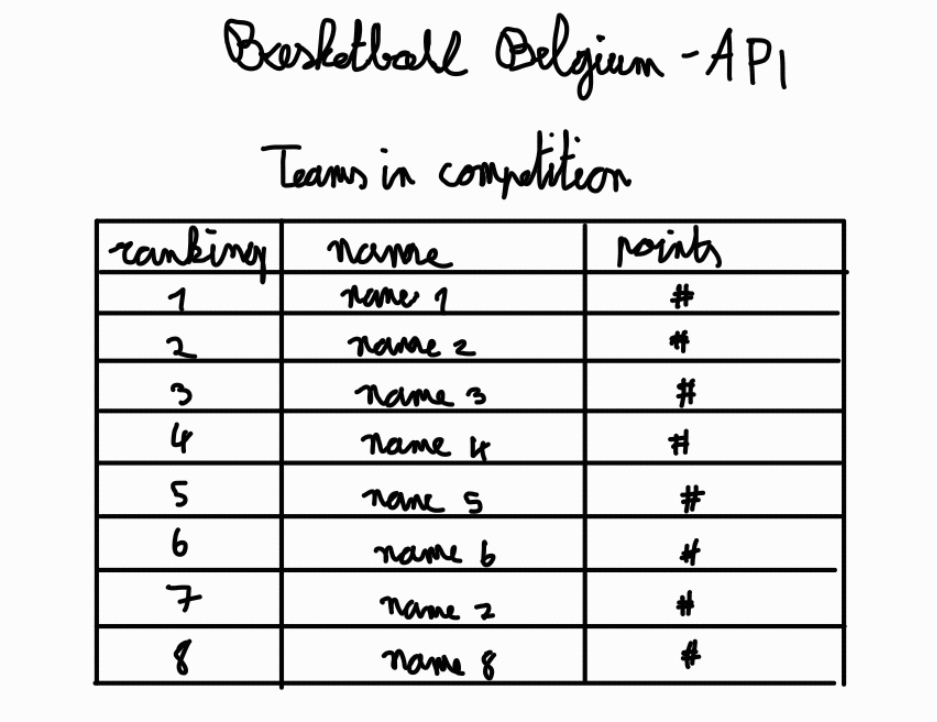 Basketball Belgium - API
Teams in competition
ranking name points
1 name 1 #
2 name 2 #
3 name 3 #
4 name 4 #
5 name 5 #
6 name 6 #
7 name 7 #
8 name 8 #